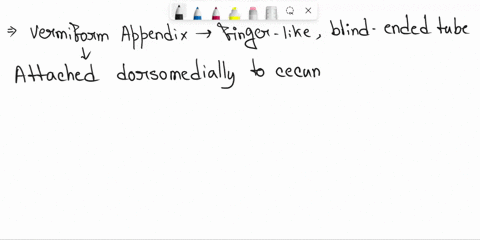 ⇒ Vermiform Appendix → finger-like, blind-ended tube
↓
Attached dorsomedially to cecun